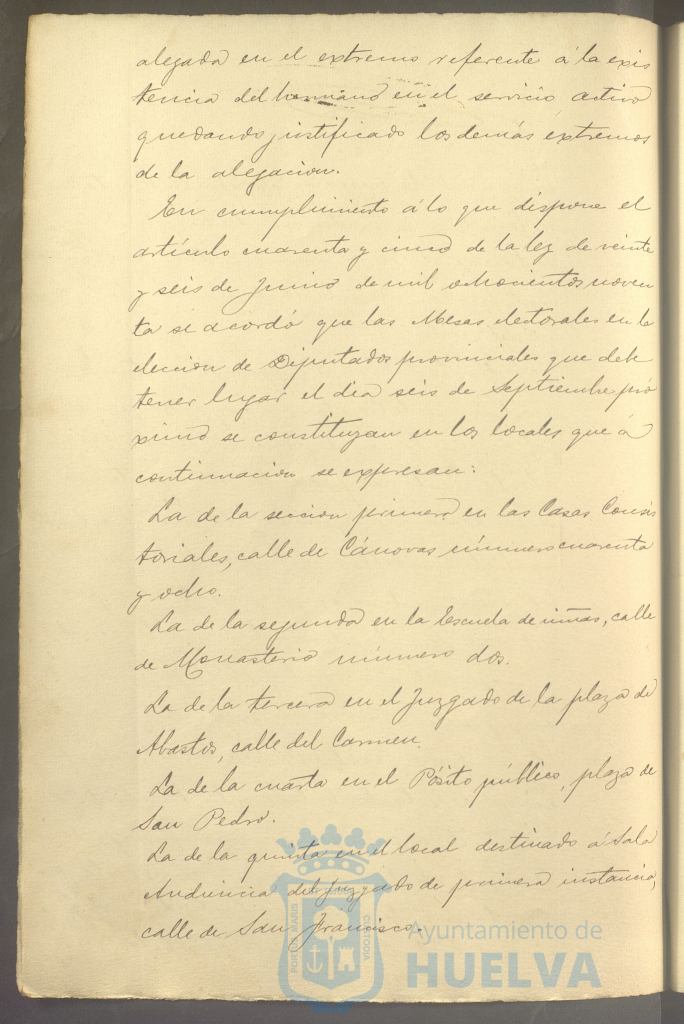 alegada en el extremo referente á la exis
tencia del hermano en el servicio activo
quedando justificado los demás extremos
de la alegacion.
En cumplimiento á lo que dispone el
artículo cuarenta y cinco de la ley de veinte
y seis de Junio de mil ochocientos noven
ta se acordó que las Mesas electorales en la
eleccion de Diputados provinciales que debe
tener lugar el dia seis de Septiembre pró
ximo se constituyan en los locales que á
continuacion se expresan:
La de la seccion primera en las Casas Consis
toriales, calle de Cánovas número cuarenta
y ocho.
La de la segunda en la Escuela de niñas, calle
de Monasterio número dos.
La de la tercera en el Juzgado de la plaza de
Abastos, calle del Carmen.
La de la cuarta en el Pósito público, plaza de
San Pedro.
La de la quinta en el local destinado á Sala
Audiencia del Juzgado de primera instancia,
calle de San Francisco.
PORTUS MARIS CUSTODIA
Ayuntamiento de
HUELVA